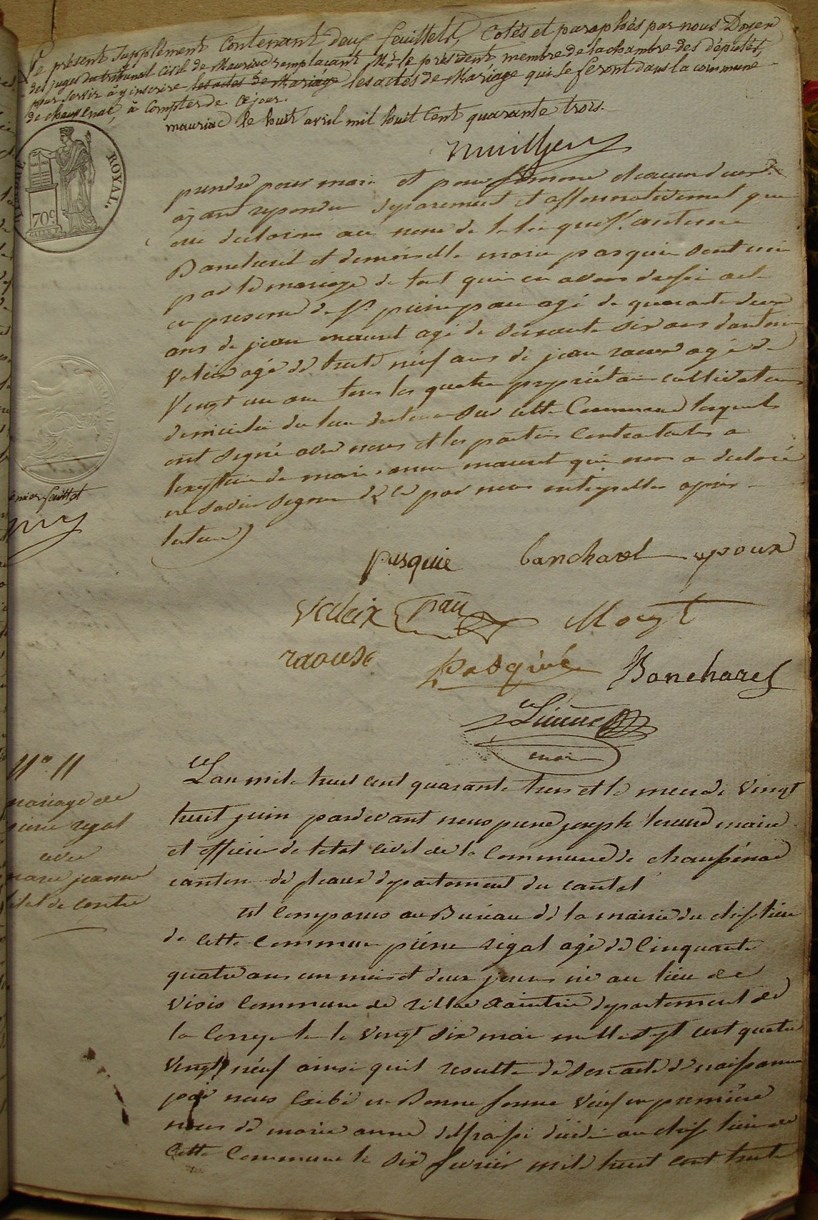 Le présent supplément contenant deux feuillets, cotés et paraphés par nous Doyen
des juges du tribunal civil de Mauriac remplaçant Mr le président, membre de la chambre des députés,
pour servir à y inscrire les actes de Mariage les actes de Mariage qui se feront dans la commune
de chaussenac, à compter de ce jour.
mauriac le huit avril mil huit cent quarante trois.
ROYAL.
70c
prendre pour mari et pour femme chacun deux
ayant repondu separement et affirmativement que
oui declarons au nom de la loi que Sr antoine
Bancharel et demoiselle marie pasquie sont unis
par le mariage de tout quoi en avons dressé acte
en presence de Sr pierre pau agé de quarante deux
ans de jean mouret agé de soixante dix ans d'antoine
Veleix agé de trente neuf ans de jean raoux agé de
Vingt un ans tous les quatre proprietaires cultivateurs
domiciliés du lieu de cette Commune lesquels
ont signé avec nous et les parties contractantes a
lexeption de marie anne mouret qui nous a declaré
ne savoir signer de ce par nous interpellée apres
lecture)
premier feuillet
pasquie bancharel epoux
veleix pau
raouse Pasquié Bancharel
maire
no 11
mariage de
pierre rigal
avec
marie jeanne
L'an mil huit cent quarante trois et le mercredi vingt
huit juin pardevant nous pierre joseph maire
et officier de letat civil de la Commune de chaussenac
canton de pleaux departement du cantal
est comparus au Bureau de la mairie du chef lieu
de cette commune pierre rigal agé de cinquante
quatre ans un mois et deux jours né au lieu de
commune de rilhac xaintrie departement de
la Correze le vingt six mai mille sept cent quatre
vingt neuf ainsi quil resulte de son acte de naissance
par nous exibé en Bonne forme veuf en premiere
noces de marie anne decedée au chef lieu de
cette commune le dix fevrier mil huit cent trente